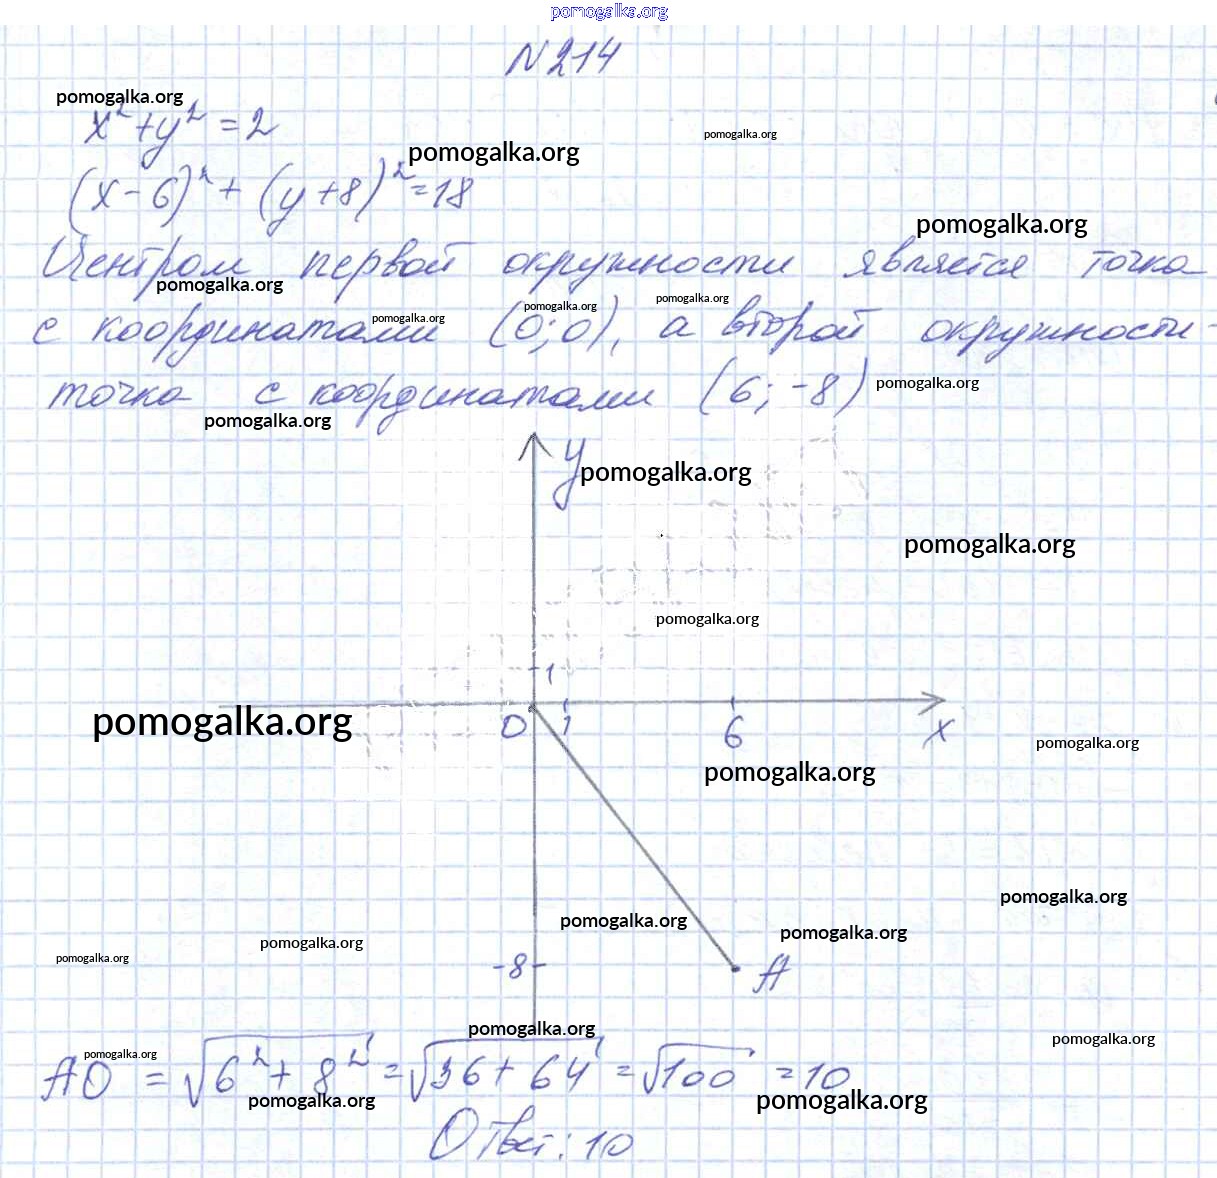 pomogalka.org
N 214
pomogalka.org
x² + y² = 2
pomogalka.org
pomogalka.org
(x - 6)² + (y + 8)² = 18
pomogalka.org
Центром первой окружности является точка
pomogalka.org
pomogalka.org
pomogalka.org
pomogalka.org
с координатами (0; 0), а второй окружности -
точка с координатами (6; -8)
pomogalka.org
pomogalka.org
y
pomogalka.org
pomogalka.org
pomogalka.org
1
pomogalka.org
0 1 6 x
pomogalka.org
pomogalka.org
pomogalka.org
pomogalka.org
pomogalka.org
pomogalka.org
pomogalka.org
-8 A
pomogalka.org
pomogalka.org
pomogalka.org
AO = √6² + 8² = √36 + 64 = √100 = 10
pomogalka.org
pomogalka.org
Ответ: 10